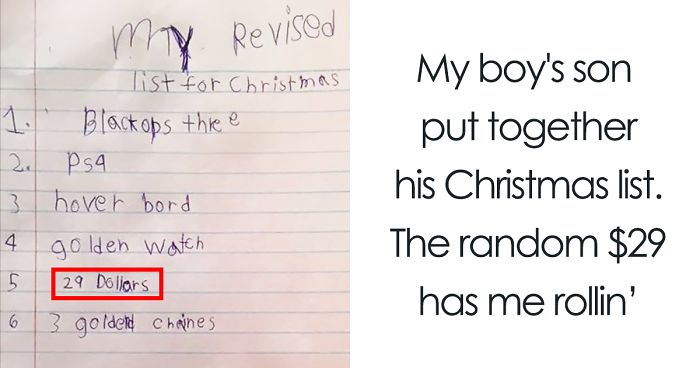 My Revised
list for Christmas
1. Blackops three
2. Ps4
3 hover bord
4 golden watch
5 29 Dollars
6 3 golden chaines
My boy's son
put together
his Christmas list.
The random $29
has me rollin’